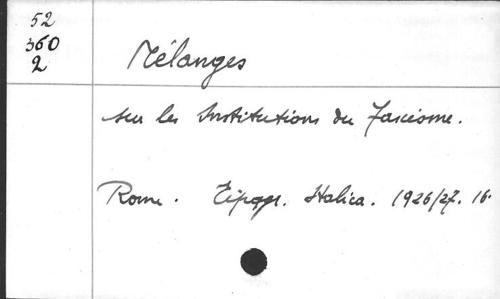 52
360
2
Mélanges
sur les Institutions du Fascisme.
Rome. Tipogr. Italica. 1926/27. 16.